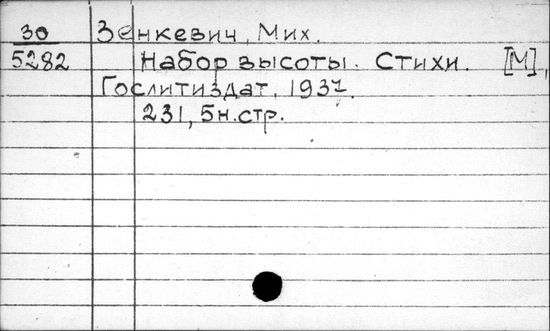 30 Зенкевич, Мих.
5282 Набор высоты. Стихи. [М],
Гослитиздат, 1937.
231, 5н.стр.